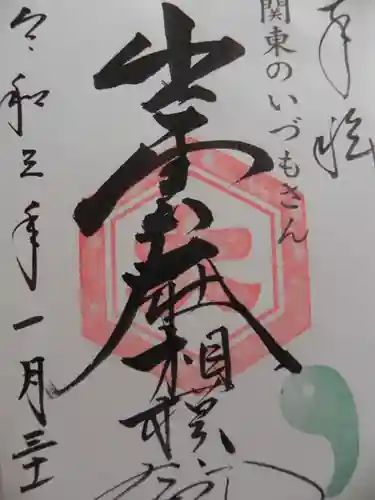 奉拝
関東のいづもさん
出雲大社
相模分祠
令和三年一月三十